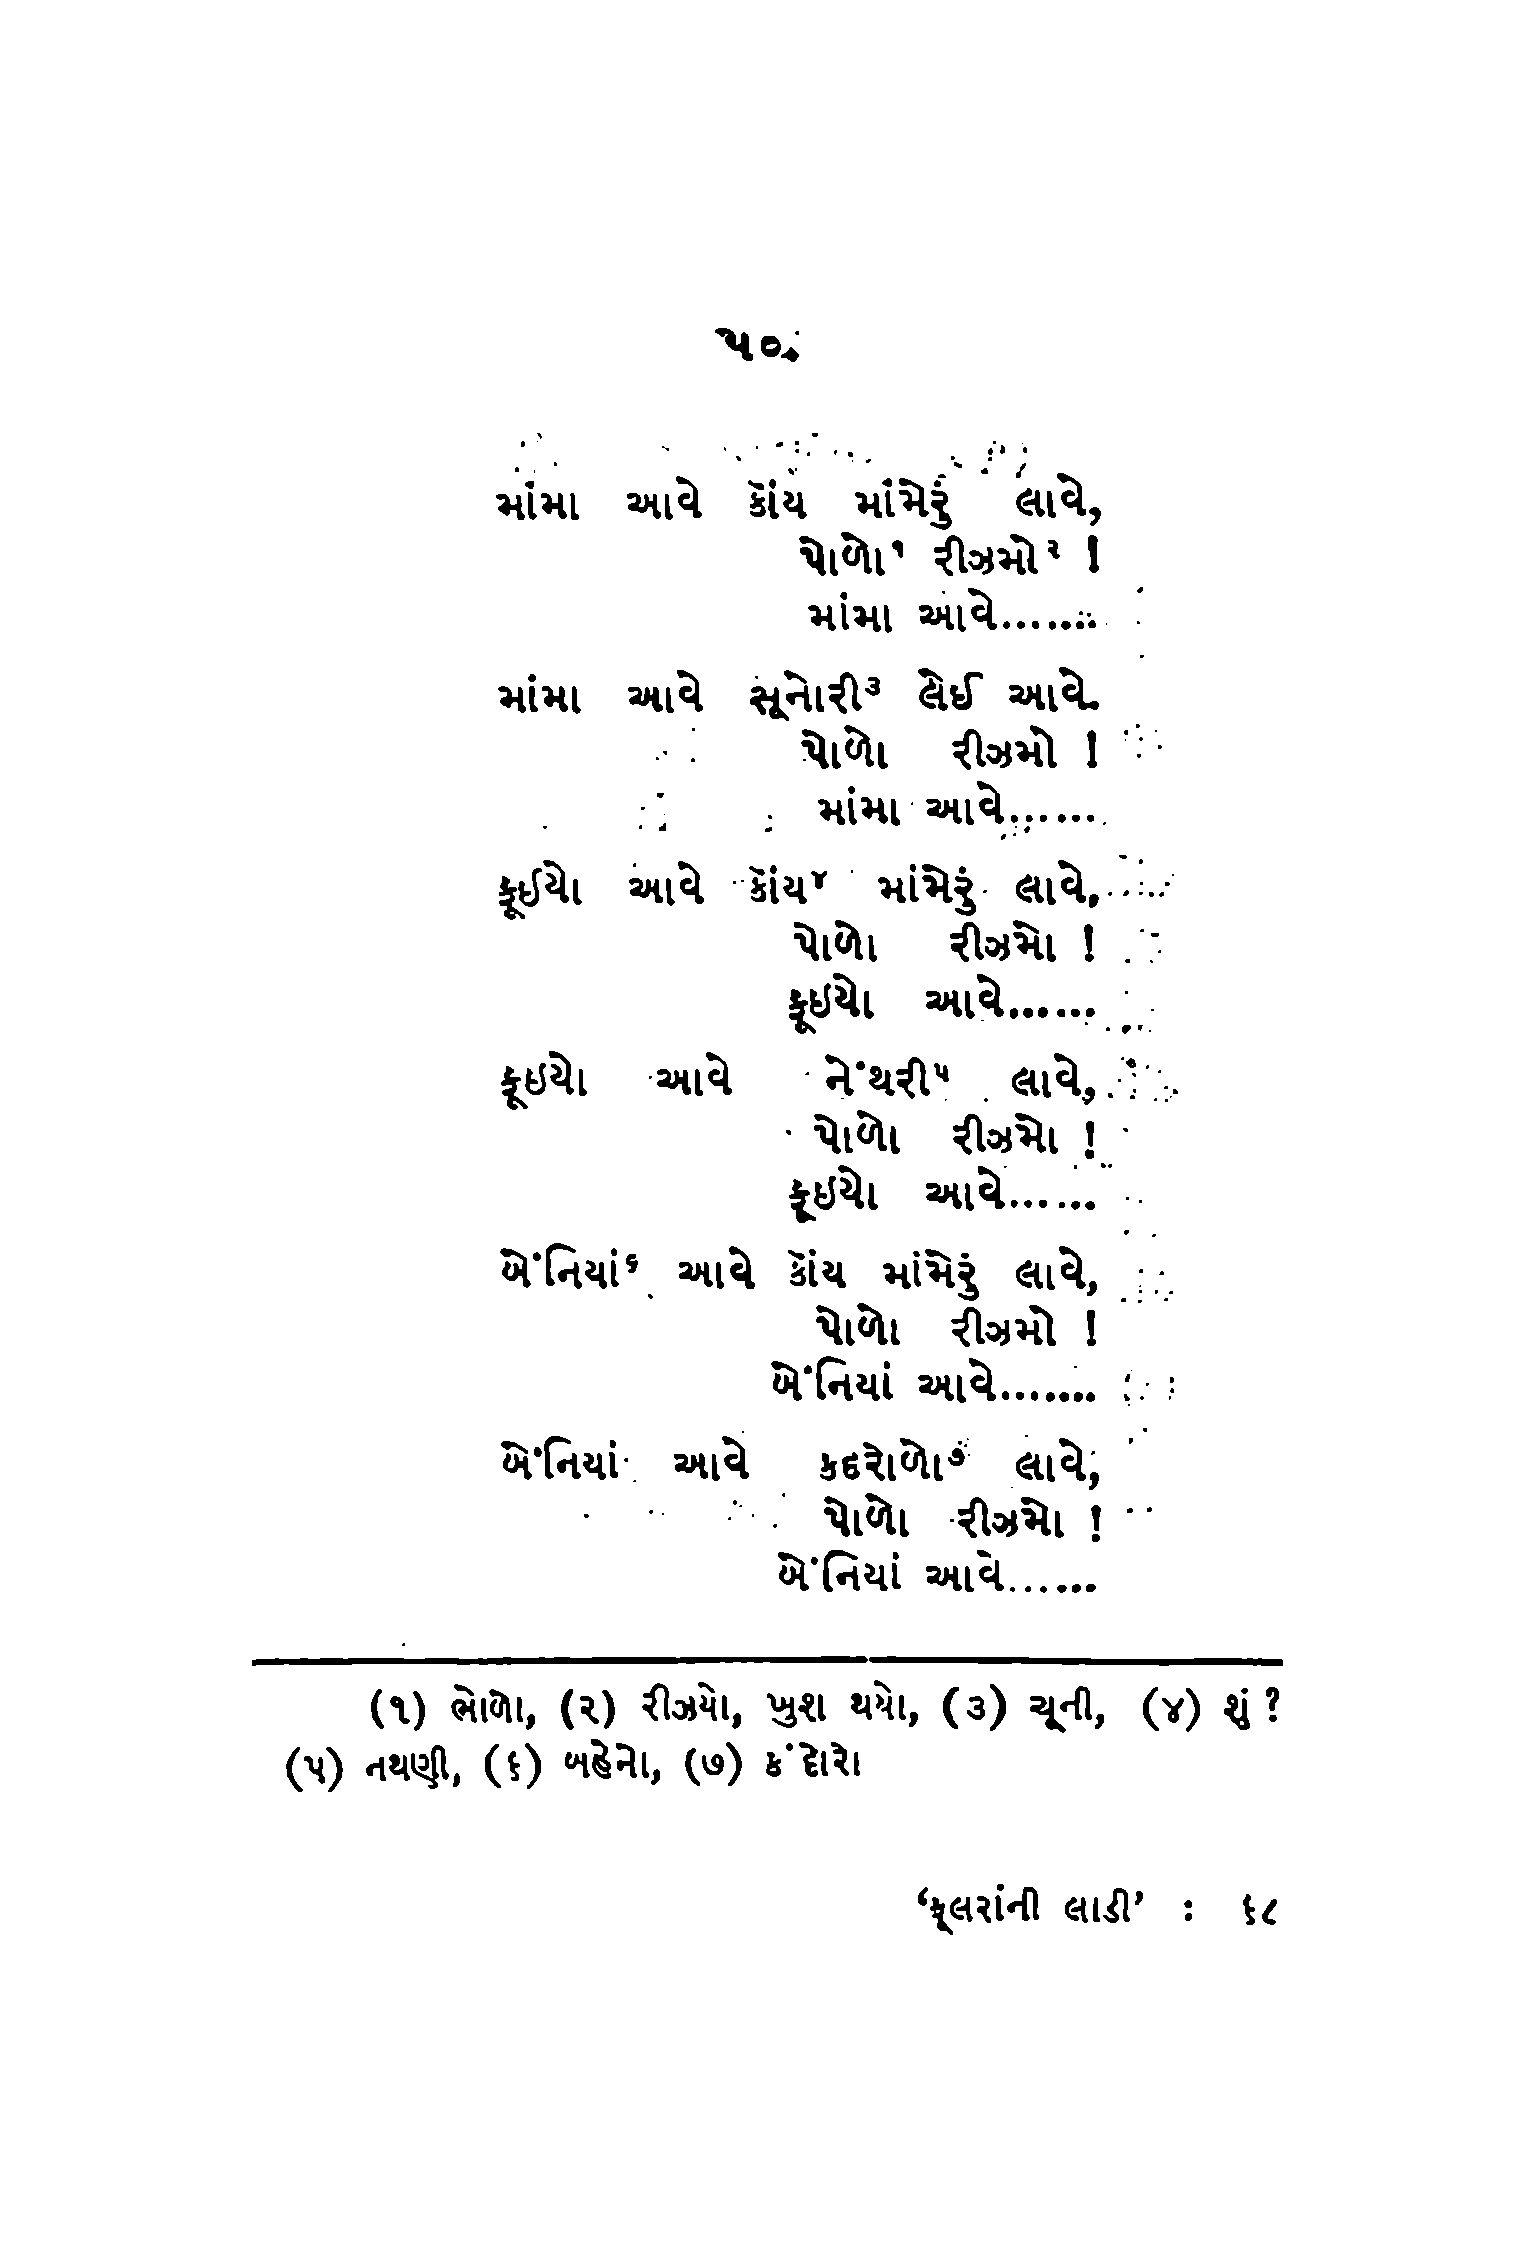 ૫૦.
માંમા આવે કૉંય માંમેરું લાવે,
પોળો૧ રીઝમો૨ !
માંમા આવે.......
માંમા આવે સૂનોરી૩ લેઈ આવે.
પોળો રીઝમો !
માંમા આવે......
ફૂઈયો આવે કૉંય૪ માંમેરું લાવે,
પોળો રીઝમો !
ફૂઇયો આવે......
ફૂઇયો આવે નેંથરી૫ લાવે,
પોળો રીઝમો !
ફૂઇયો આવે......
બેંનિયાં૬ આવે કૉંય માંમેરું લાવે,
પોળો રીઝમો !
બેંનિયાં આવે.......
બેંનિયાં આવે કદરોળો૭ લાવે,
પોળો રીઝમો !
બેંનિયાં આવે......
(૧) ભોળો, (૨) રીઝયો, ખુશ થયો, (૩) ચૂની, (૪) શું ?
(૫) નથણી, (૬) બહેનો, (૭) કંદોરો
‘ફૂલરાંની લાડી’ : ૬૮